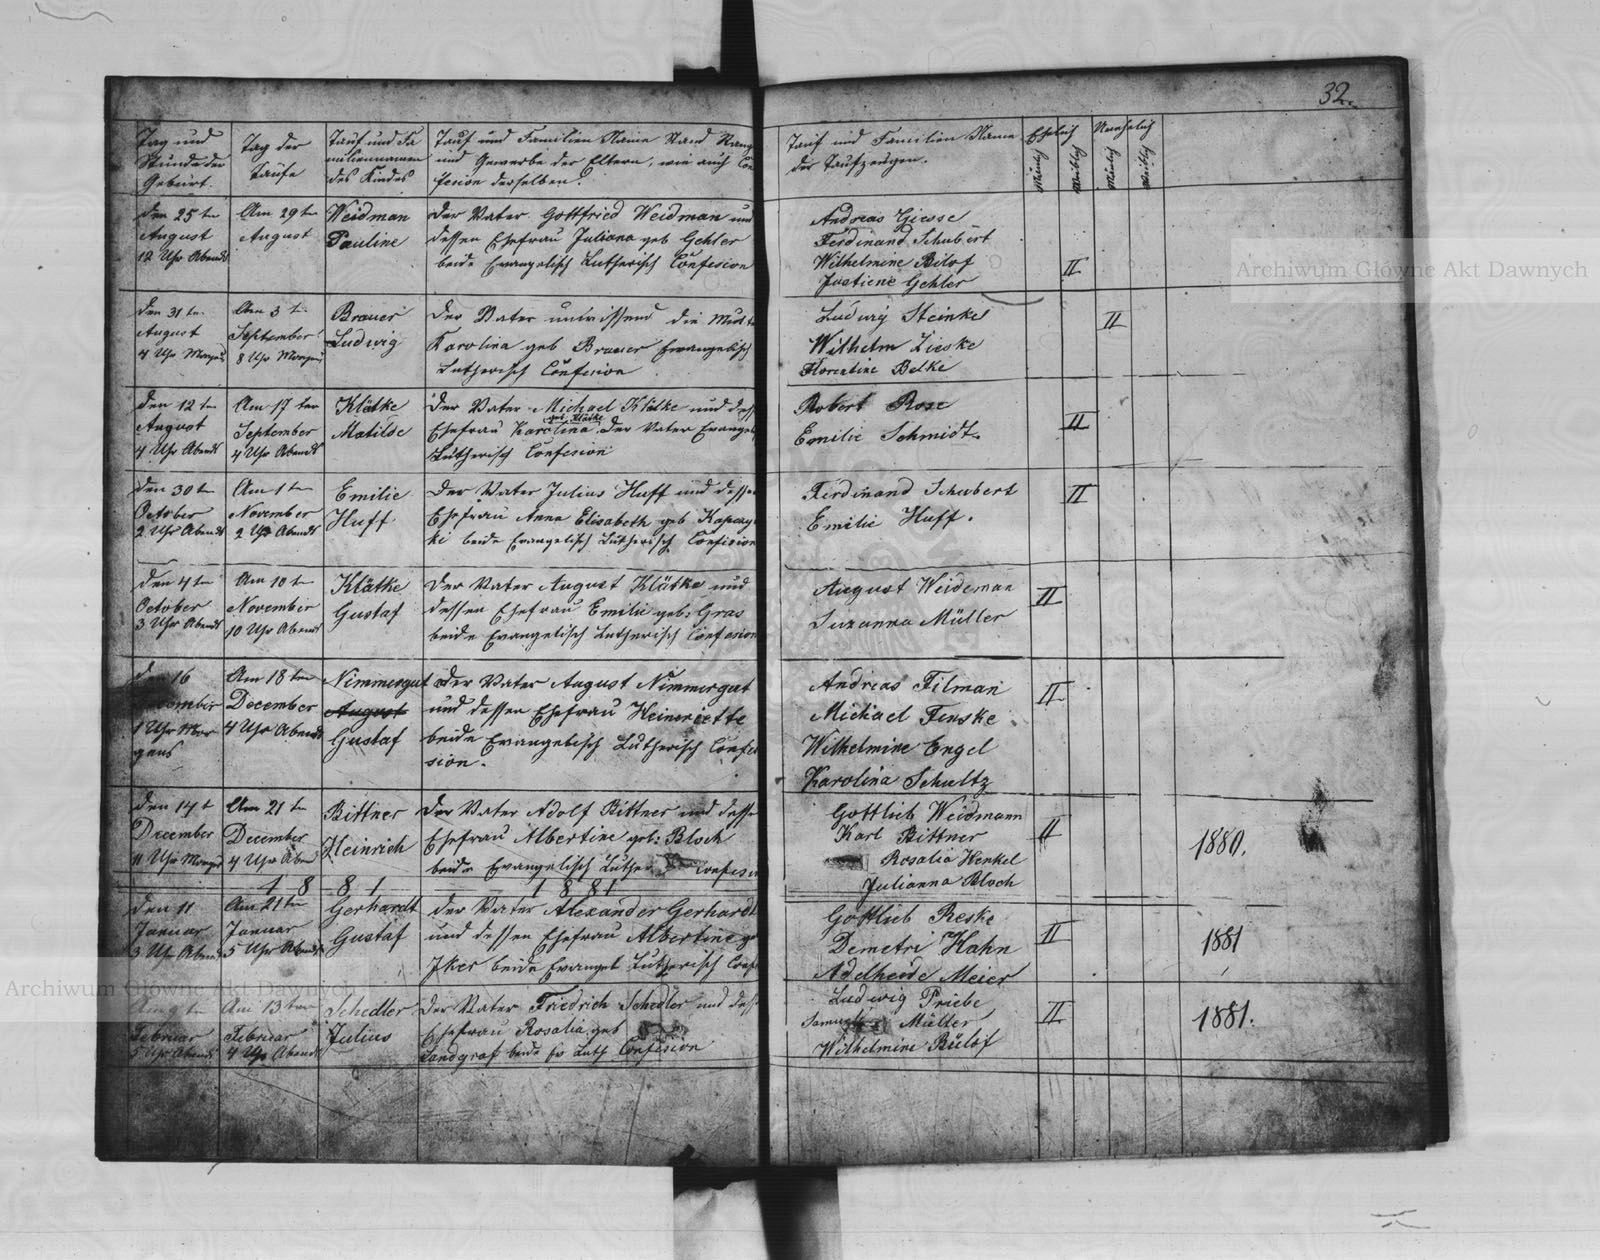 32.
Tag und
Stunde der
Geburt.
Tag der
Taufe
Tauf und Fa
miliennamen
des Kindes
Tauf und Familien Name Stand Rang
und Gewerbe der Eltern, wie auch Con
fesion derselben.
Tauf und Familien Name
der Taufzeugen.
Ehelich
Unehelich
Mänlich
Weiblich
Mänlich
Weiblich
den 25 tn
August
12 Uhr Abends
Am 29 tn
August
Weidman
Pauline
Der Vater Gottfried Weidman und
dessen Ehefrau Juliana geb Gehler
beide Evangelisch Lutherisch Confesion
Andreas Giesse
Ferdinand Schubert
Wilhelmine Bilof
Justiene Gehler
II
den 31 tn
August
4 Uhr Morgens
Am 3 tn
September
8 Uhr Morgens
Brauer
Ludwig
Der Vater unwissend die Mutter
Karolina geb Brauer Evangelisch
Lutherisch Confesion
Ludwig Steinke
Wilhelm Zieske
Florentine Belke
II
den 12 tn
August
4 Uhr Abends
Am 17 ten
September
4 Uhr Abends
Klätke
Matilde
Der Vater Michael Klätke und dess
geb. Klätke
Ehefrau Karolina der Vater Evangel
Lutherisch Confesion
Robert Rose
Emilie Schmidt.
II
den 30 tn
October
2 Uhr Abends
Am 1 tn
November
2 Uhr Abends
Emilie
Huff
Der Vater Julius Huff und dessen
Ehefrau Anna Elisabeth geb Kapczyn
ki beide Evangelisch Lutherisch Confesion
Ferdinand Schubert
Emilie Huff.
II
den 4 tn
October
3 Uhr Abends
Am 10 tn
November
10 Uhr Abends
Klätke
Gustaf
Der Vater August Klätke und
dessen Ehefrau Emilie geb: Gras
beide Evangelisch Lutherisch Confesion
August Weideman
Suzanna Müller
II
den 16
1 Uhr Mor
gens
Am 18 ten
December
4 Uhr Abends
Nimmergut
August
Gustaf
Der Vater August Nimmergut
und dessen Ehefrau Heinriette
beide Evangelisch Lutherisch Confe
sion.
Andreas Filman
Michael Finske
Wilhelmine Engel
Karolina Schultz
II
den 14 t
December
11 Uhr Morgens
Am 21 tn
December
4 Uhr Abend
Bittner
Heinrich
Der Vater Adolf Bittner und desse
Ehefrau Albertine geb: Bloch
beide Evangelisch Luther Confesio
Gottlieb Weidmann
Karl Bittner
Rosalia Henkel
Julianna Bloch
II
1880.
1 8 8 1
1 8 8 1
den 11
Januar
3 Uhr Abends
Am 21 tn
Januar
5 Uhr Abends
Gerhardt
Gustaf
Der Vater Alexander Gerhardt
und dessen Ehefrau Albertine g
Jker beide Evangel Lutherisch Conf
Gottlieb Reske
Demetri Hahn
Adelheide Meier
II
1881
Am 9 tn
Februar
5 Uhr Abends
Am 13 ten
Februar
4 Uhr Abends
Schedler
Julius
Der Vater Friedrich Schedler und dess
Ehefrau Rosalia geb
Landgraf beide Ev Luth Confesion
Ludwig Priebe
Samuel Müller
Wilhelmine Bülof
II
1881.
Archiwum Główne Akt Dawnych
Archiwum Główne Akt Dawnych